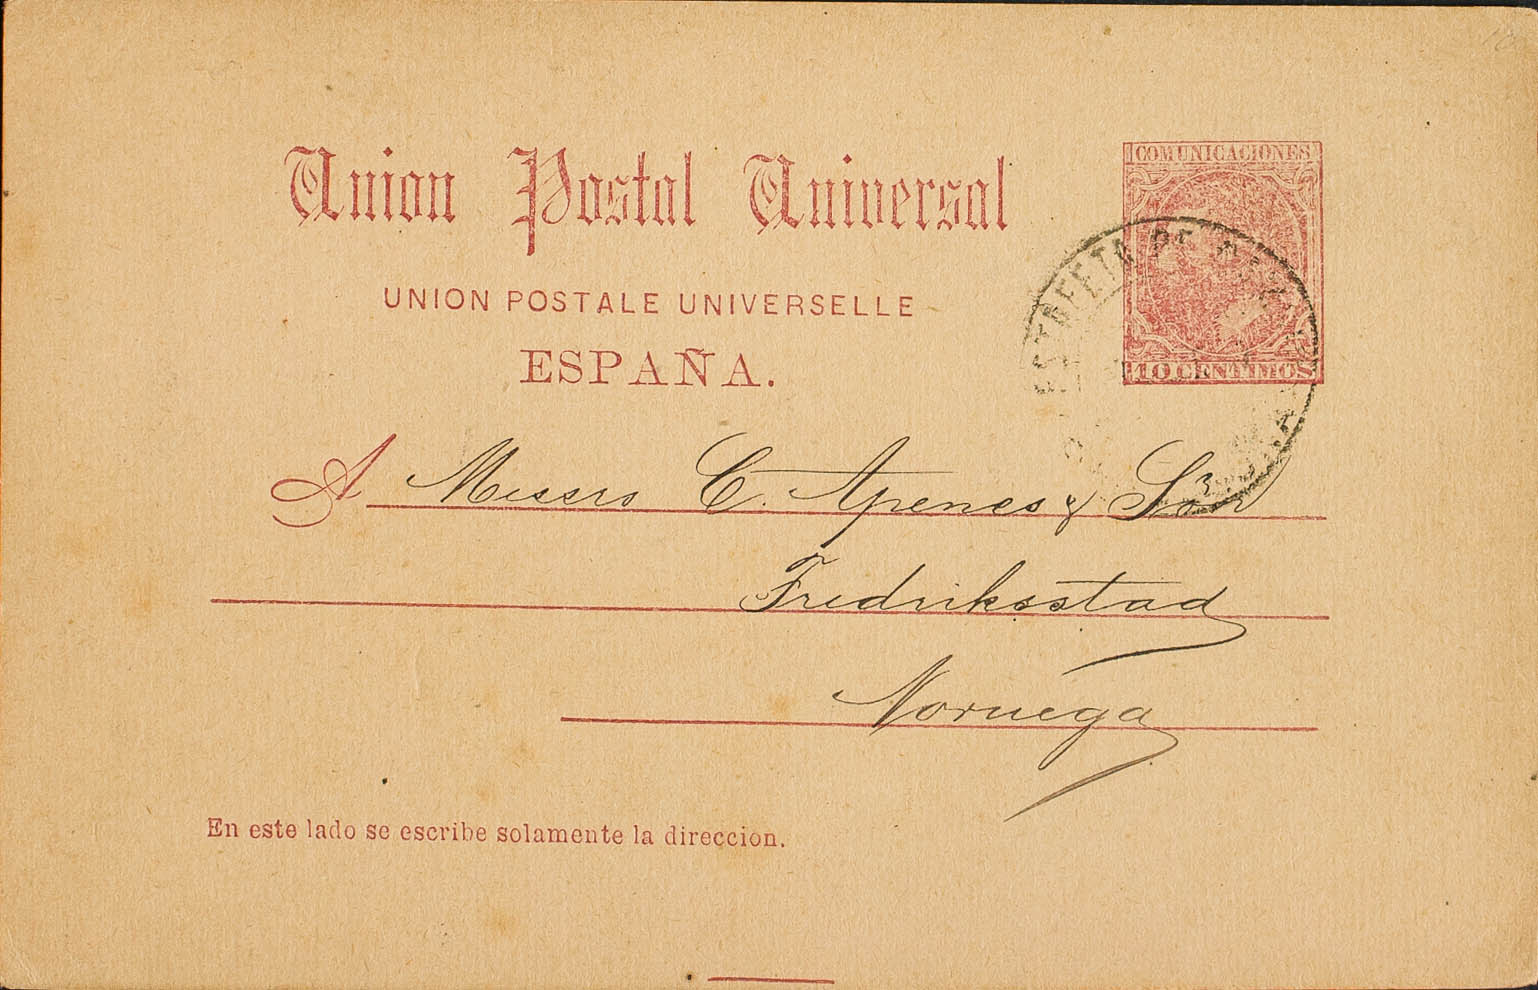 Union Postal Universal
COMUNICACIONES
UNION POSTALE UNIVERSELLE
ESPAÑA.
10 CENTIMOS
ESTAFETA DE
A Messrs C. Apenes & Sön
Fredriksstad
Noruega
En este lado se escribe solamente la direccion.